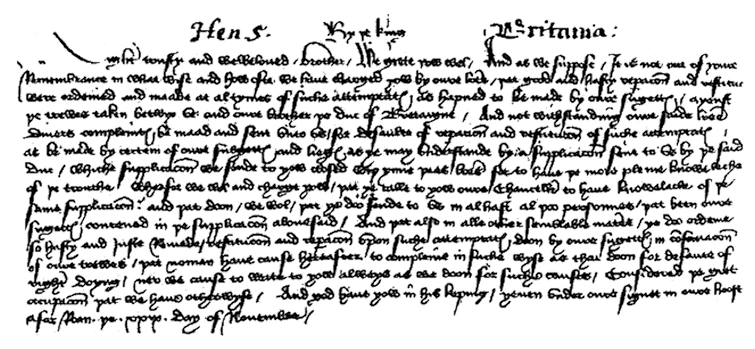 Hen 5. By þe king Britania:
tristy and welbeloved brother, We grete yow wel, And as we suppose, It is not out of youre
Remembrance in what wise and how ofte we have charged yow by oure lettres, þat good and hasty reparacion and restitucion
were ordeined and maade at al tymes of suche attemptats as hapned to be made by oure suggetts, ayenst
þe trewes taken betwyx us and oure brother þe duc of Bretaigne, And not withstanding oure saide lettres
divers complaints be maad and sent unto us, for defaulte of reparacion and restitucion of suche attemptats,
as be made by certein of oure suggetts and lieges, as ye may understande by a supplicacion sent to us by þe said
duc, whiche supplicacion we sende to yow closed with ynne þees lettres for to have þe more pleine knowleche
of þe trouthe. Wherfor we wol and charge yow, þat ye calle to yow oure Chanceller to have knowlache of þe
same supplicacion: and þat doon, we wol, þat ye doo sende to us in al hast al þoo personnes, þat been oure
suggetts contened in þe supplicacion abouesaid, And þat also in alle other semblable maters, ye do ordene
so hasty and Juste Remede, restitucion and reparacion upon suche attemptats, doon by oure suggetts in conservacion
of oure trewes, þat noman have cause hereafter, to compleine in suche wyse as thei doon for defaute of
right doyng, ner we cause to write to yow alwayes as we doon for suche causes, Considered þe gret
occupacion þat we have otherwyse, And god have yow in his keping, yeven under oure signet in oure hoost
afore Roan. þe xxix. day of Novembre,